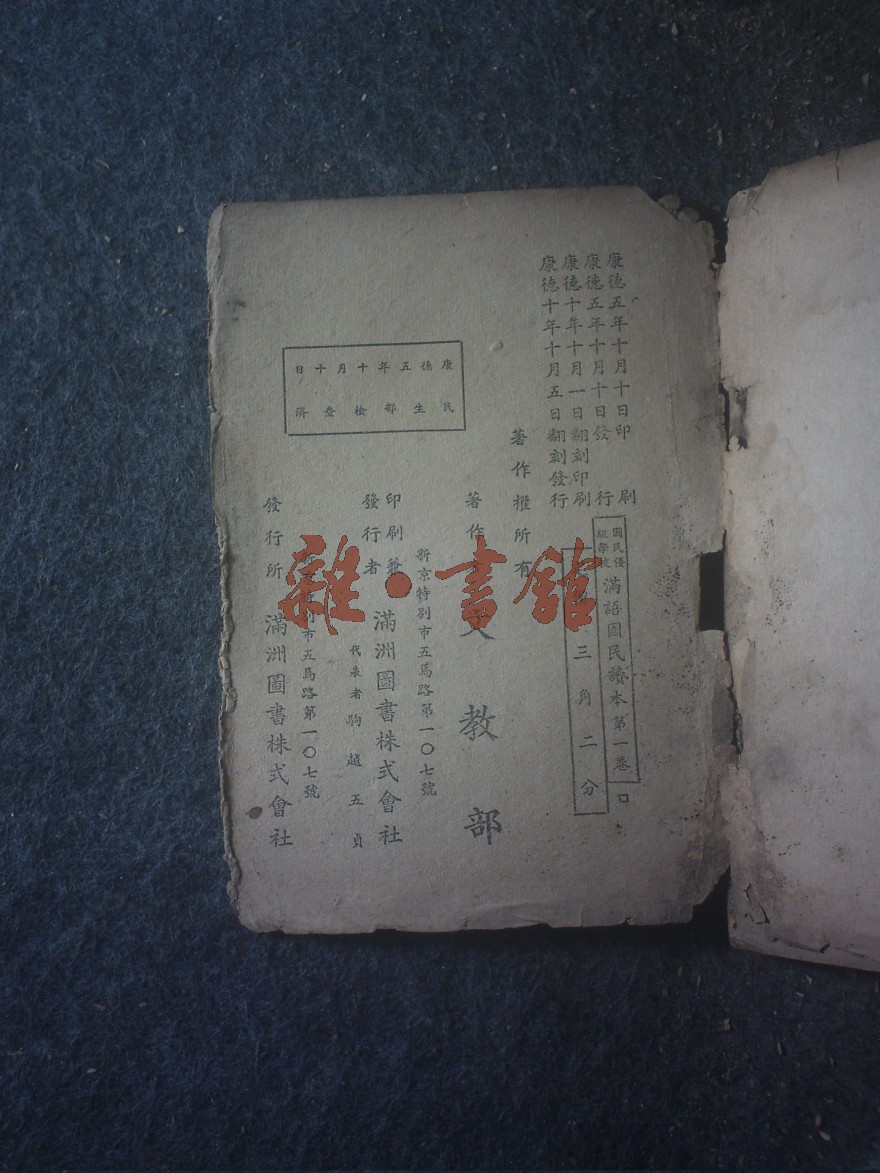 康德五年十月十日印刷
康德五年十月十日發行
康德十年十月一日翻刻印刷
康德十年十月五日翻刻發行
國民優級學校
滿語國民讀本第一卷
三角二分
著作權所有
著作
教部
新京特別市五馬路第一〇七號
印刷兼
發行者
滿洲圖書株式會社
代表者駒越五貞
別市五馬路第一〇七號
發行所
滿洲圖書株式會社
康德五年十月十日
民生部檢查濟
雜·書館